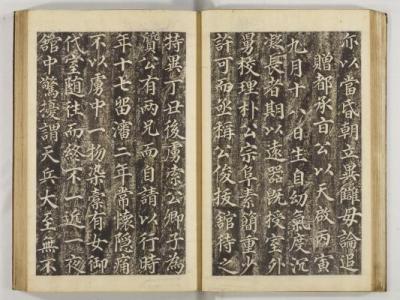 亦以當昏朝立異雖毋論追
贈都承旨公以天啟丙寅
九月十八日生自幼氣度沉
凝長者期以遠器既授室外
舅校理朴公宗阜素簡重少
許可而亟稱公俊拔館待之
特異丁丑後虜索公卿子為
質公有兩兄而自請以行時
年十七留瀋二年常懷隐痛
不以虜中一物染橐有女御
代室隨往而終不一近一夜
館中驚擾謂天兵大至無不